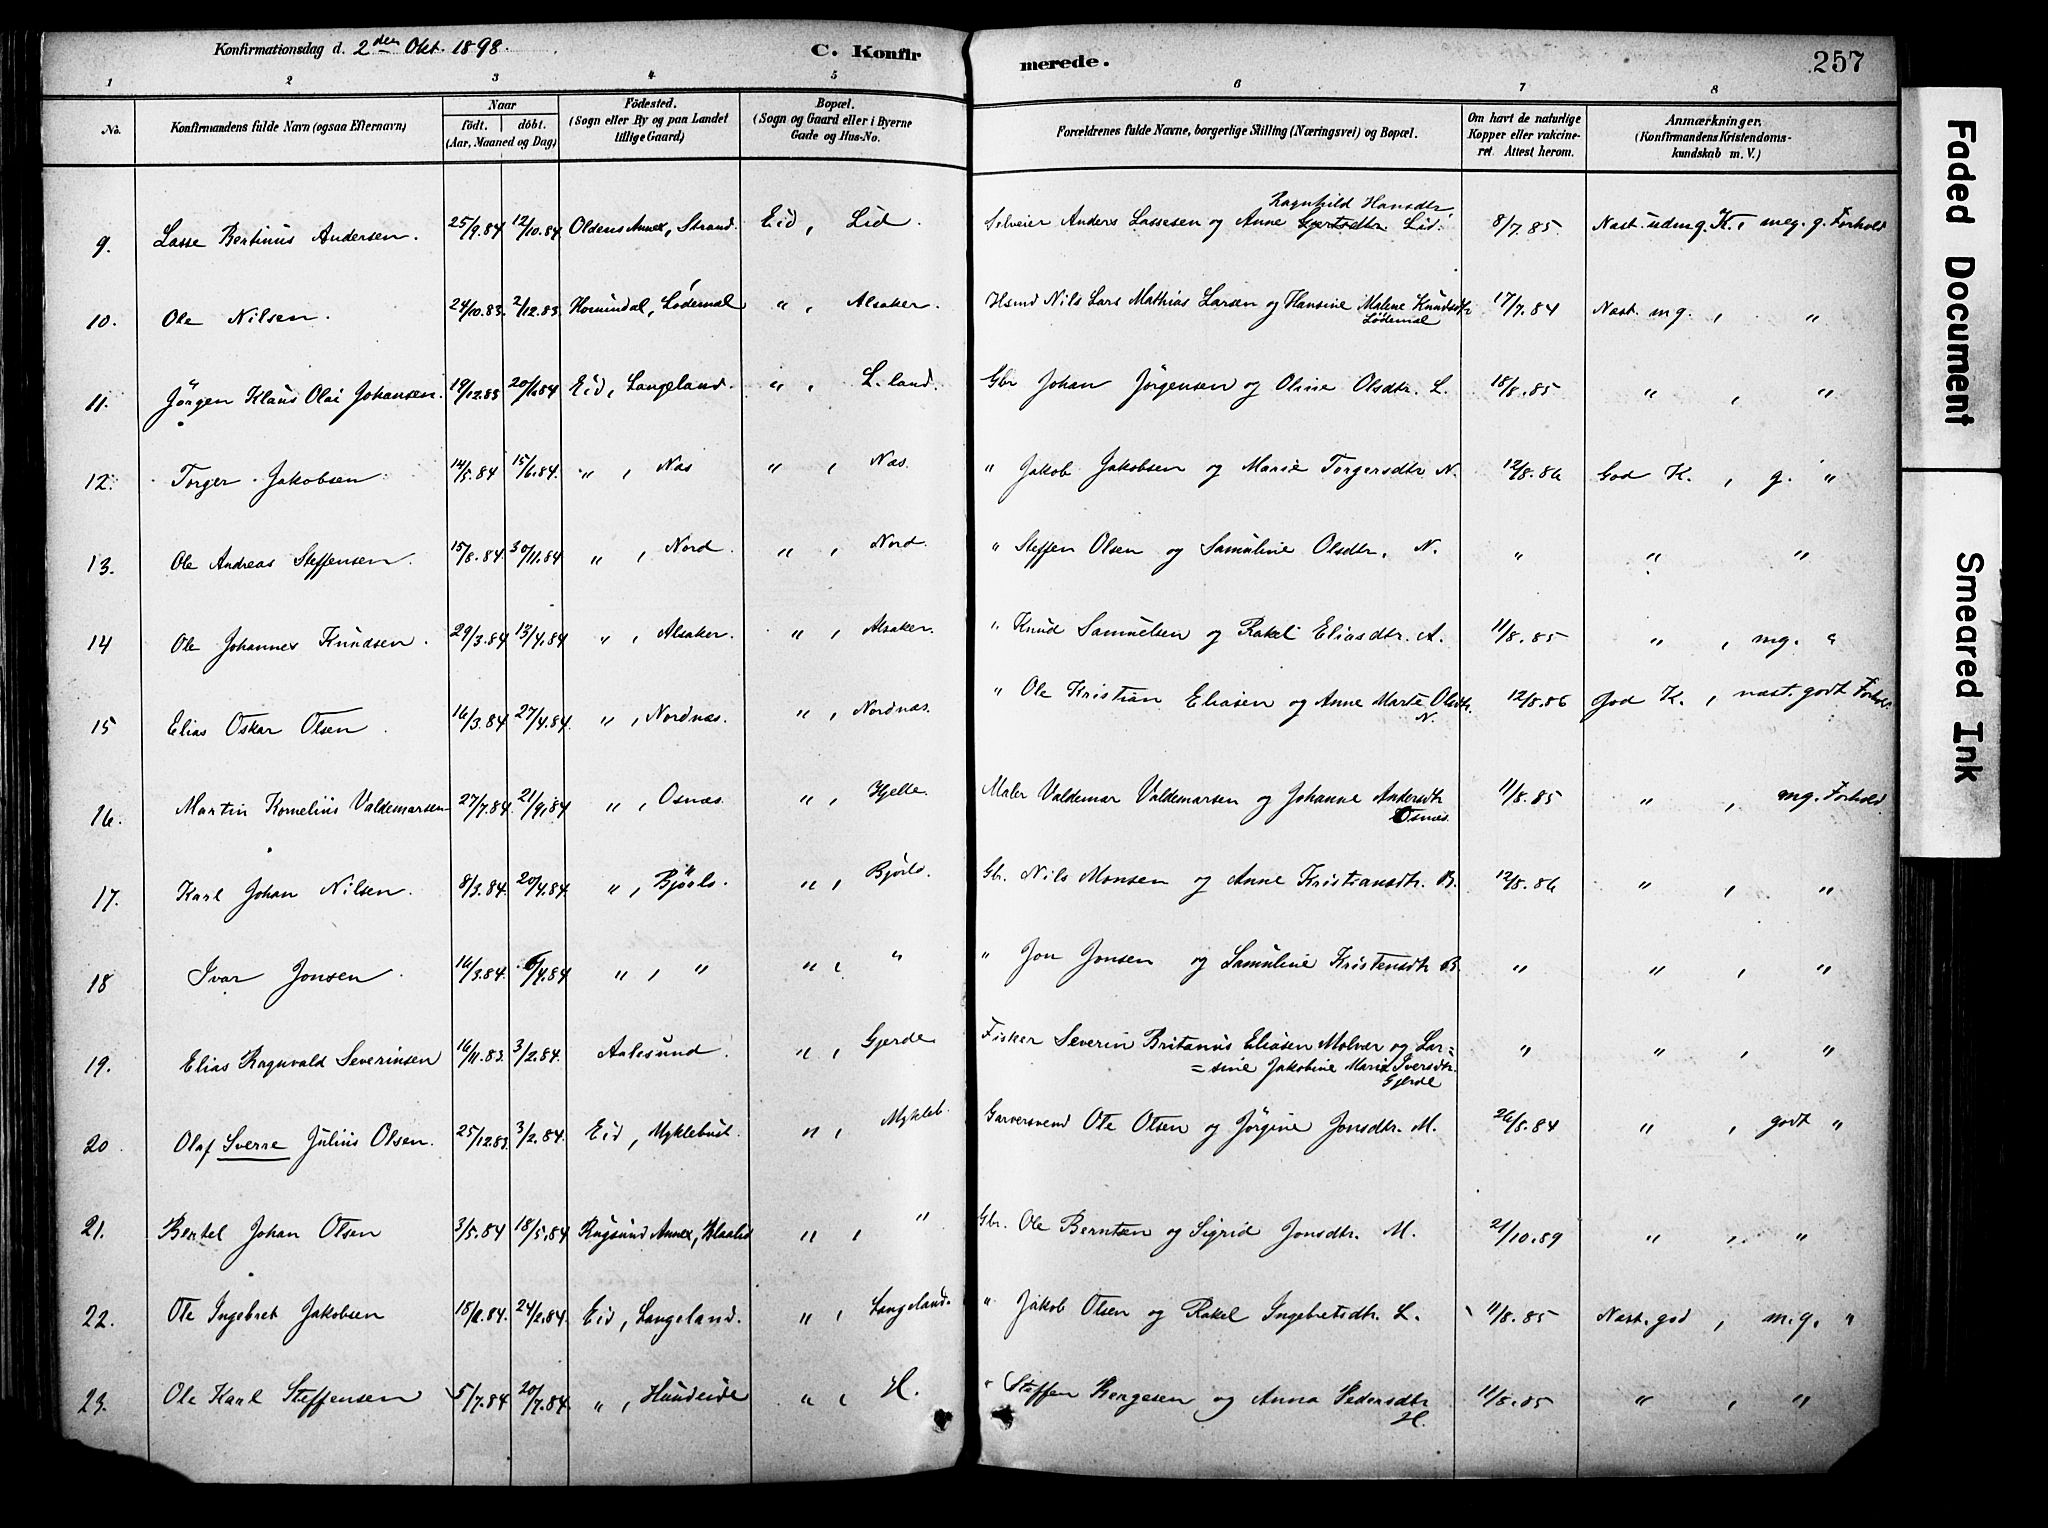 Konfirmationsdag d. 2den Okt. 1898.
C. Konfirmerede.
257
1 2 3 4 5 6 7 8
No.
Konfirmandens fulde Navn (ogsaa Efternavn)
Naar
födt. döbt.
(Aar, Maaned og Dag)
Födested.
(Sogn eller By og paa Landet
tillige Gaard)
Bopæl.
(Sogn og Gaard eller i Byerne
Gade og Hus-No.
Forældrenes fulde Navne, borgerlige Stilling (Næringsvei) og Bopæl.
Om havt de naturlige
Kopper eller vakcine-
ret. Attest herom.
Anmærkninger.
(Konfirmandens Kristendoms-
kundskab m. V.)
Ragnhild Hansdtr
9. Lasse Bertinus Andersen. 25/9.84 12/10.84 Oldens Annex, Strand. Eid, Lid. Selveier Anders Lassesen og Anne Gjertsdtr Lid. 8/7.85. Næst. udm g. K., meg. g. Forhold
10. Ole Nilsen. 24/10.83. 2/12.83. Hornindal, Lødemel " , Alsaker. Hsmd Nils Lars Mathias Larsen og Hansine Malene Knudsdtr 17/7.84 Næst. mg. , "
Lødemel
11. Jörgen Klaus Olai Johansen. 19/12.83 20/1.84 Eid, Langeland. " , L.land. Gbr Johan Jörgensen og Oline Olsdtr. L. 18/8.85 " , "
12. Torger Jakobsen 14/5.84 15/6.84. " , Nes " , Nes. " Jakob Jakobsen og Marie Torgersdtr N. 12/8.86 God K. , g. "
13. Ole Andreas Steffensen. 15/8.84 30/11.84 " , Nord. " , Nord. " Steffen Olsen og Samuline Olsdtr. N. " " "
14 Ole Johannes Knudsen. 29/3.84 13/4.84 " , Alsaker. " , Alsaker. " Knud Samuelsen og Rakel Eliasdtr. A. 11/8.85 " , mg. "
15 Elias Oskar Olsen. 16/3.84 27/4.84 " , Nordnes. " , Nordnes. " Ole Kristian Eliasen og Anne Marte Olsdtr. 12/8.86 God K. , næst. godt Forhold.
N.
16. Martin Kornelius Valdemarsen 27/7.84 21/9.84 " , Osnes. " , Hjelle. Maler Valdemar Valdemarsen og Johanne Andersdtr 11/8.85 " , mg. Forhold
Osnes.
17. Karl Johan Nilsen. 8/3.84. 20/4.84 " , Bjørlo. " , Bjørlo. Gbr. Nils Monsen og Anne Kristiansdtr. B. 12/8.86 " , "
18 Ivar Jonsen. 16/3.84. 6/4.84 " , " " , " " Jon Jonsen og Samuline Kristensdtr B. " " , "
19. Elias Ragnvald Severinsen 16/11.83. 3/2.84. Aalesund. " , Gjerde Fisker Severin Britanus Eliasen Molvær og Lar=
=sine Jakobine Marie Iversdtr. " " , "
Gjerde
20 Olaf Sverre Julius Olsen. 25/12.83. 3/2.84. Eid, Myklebust. " , Mykleb. Garversvend Ole Olsen og Jörgine Jonsdtr. M. 26/8.84 " , godt "
21. Bertel Johan Olsen 3/5.84 18/5.84 Rugsund Annex, Blaalid " , " Gbr. Ole Berntsen og Sigrid Jonsdtr. M. 21/10.89 " , "
22. Ole Ingebret Jakobsen 24/2.84. Eid, Langeland. " , Langeland. " Jakob Olsen og Rakel Ingebretsdtr. L. 11/8.85 Næst. god , m.g. "
23. Ole Karl Steffensen 5/7.84 20/7.84 " , Hundeide " , H. " Steffen Bergesen og Anna Pedersdtr 11/8.85 " , "
H.
Faded Document
Smeared Ink